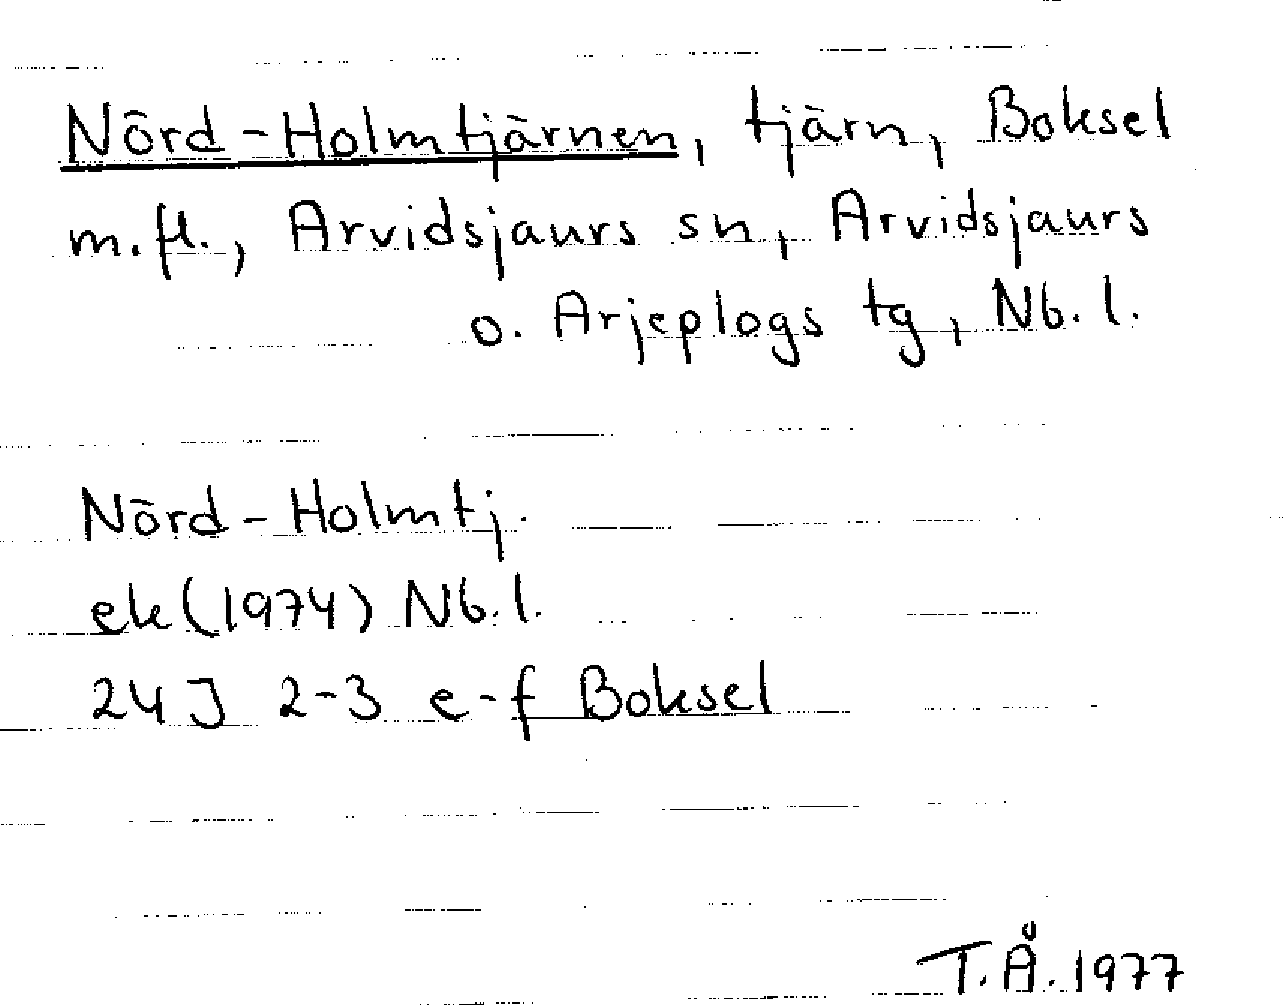 Nörd-Holmtjärnen, tjärn, Boksel
m.fl., Arvidsjaurs sn, Arvidsjaurs
o. Arjeplogs tg, Nb.l.
Nörd-Holmtj.
ek (1974) Nb.l.
24J 2-3 e-f Boksel
T.Å. 1977